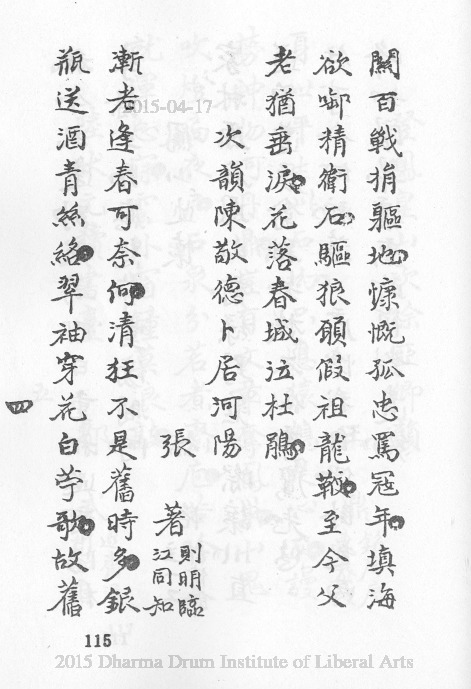 關百戰捐軀地慷慨孤忠罵冦年填海
欲啣精衛石驅狼願假祖龍鞭至今父
老猶垂淚花落春城泣杜鵑
次韻陳敬德卜居河陽
張著則明臨江同知
漸老逢春可奈何清狂不是舊時多銀
瓶送酒青絲絡翠袖穿花白苧歌故舊
四
115
2015-04-17
2015 Dharma Drum Institute of Liberal Arts